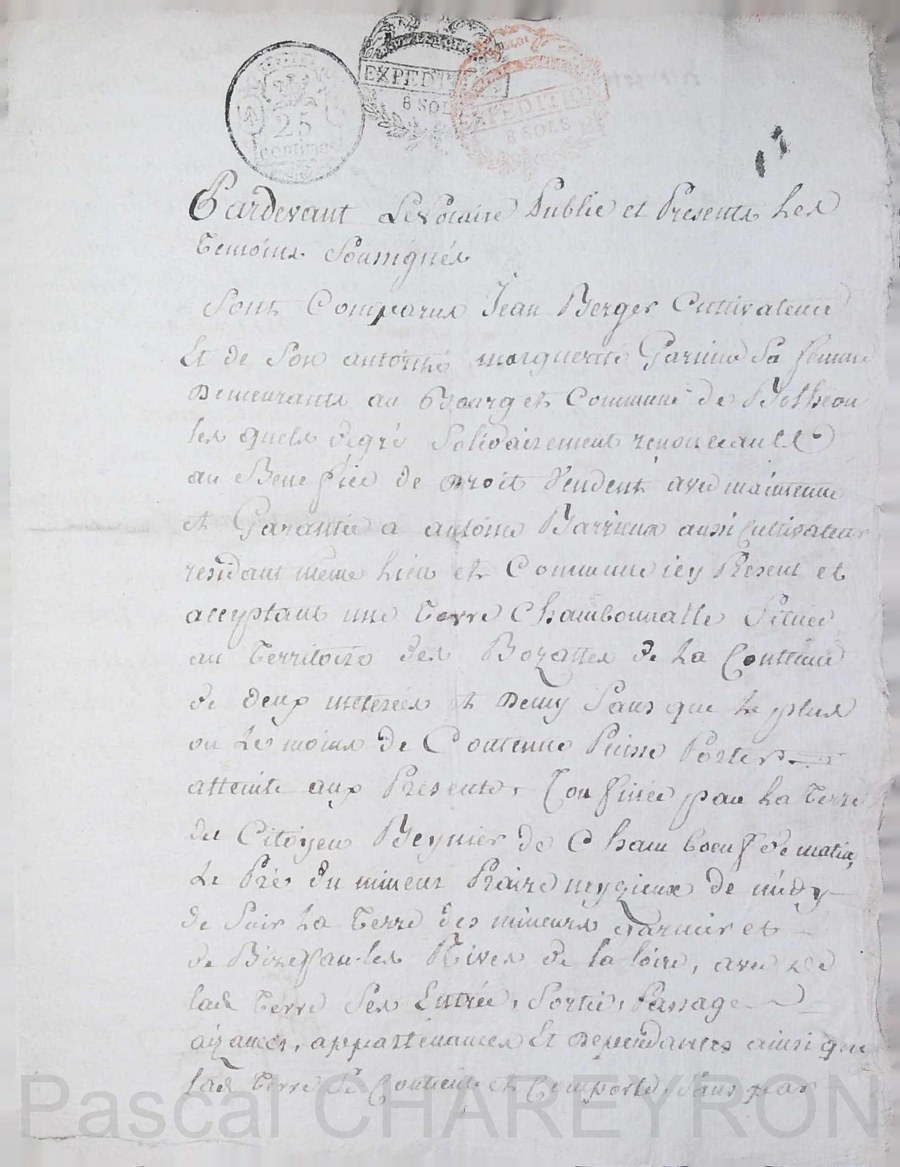 25
centimes
EXPEDITION
8 SOLS
EXPEDITION
8 SOLS
Pardevant Le Notaire Public et Presents Les
Temoins Soussignés
Sont Comparus Jean Berger Cultivateur
Et de Son autorité marguerite Garnier Sa femme
Demeurants au Bourg et Commune de
les quels de gré Solidairement renonceant
au Benefice de Droit Vendent avec maintenue
et Garantie a antoine Barrieux aussi Cultivateur
residant même Lieu et Commune icy Present et
acceptant une Terre Chambonnalle Située
au Territoire des de La Contenue
de deux meterées et Demy Sans que Le plus
ou Le moins de Contenue Puisse Porter
atteinte aux Presente, Confinée par La Terre
du Citoyen Reynier de Chamboeuf de matin,
Le Pré du mineur Praire de midy
de Soir La Terre des mineurs Garnier et
de Bize Rives de la loire, avec
lad Terre Ses Entrée, Sortie, Passage
aizances, appartenances Et Dependantes ainsi que
lad Terre Se Contient et Comporte, Sans par
Pascal CHAREYRON